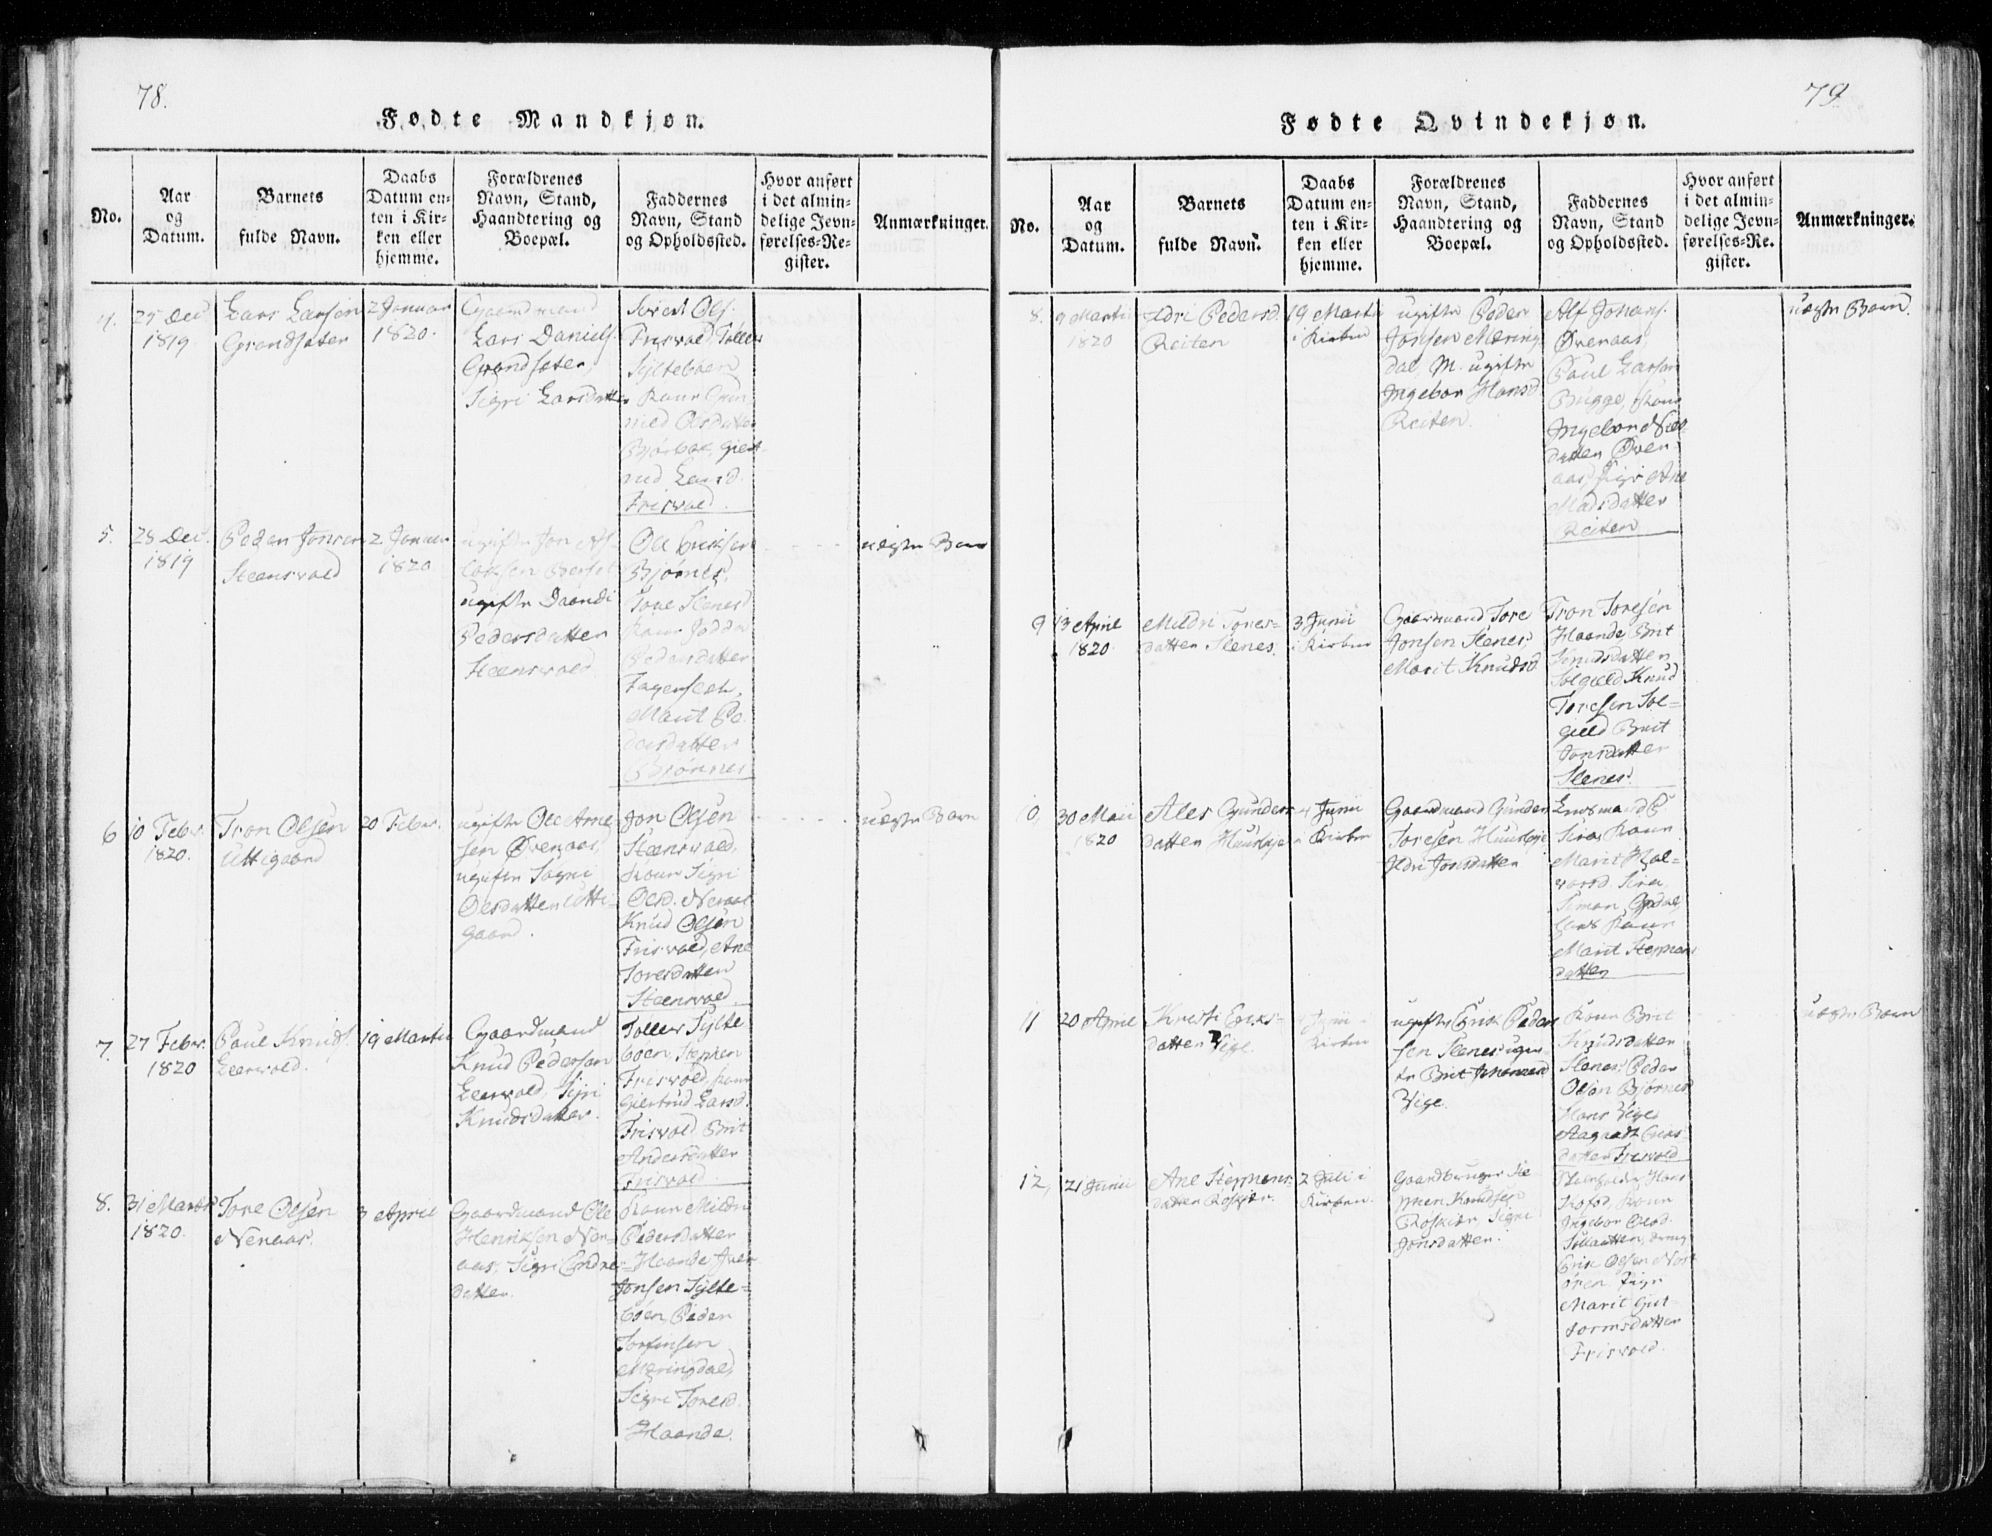 78.
Fødte Mandkjøn.
No.
Aar
og
Datum.
Barnets
fulde Navn.
Daabs
Datum en-
ten i Kir-
ken eller
hjemme.
Forældrenes
Navn, Stand,
Haandtering og
Boepæl.
Faddernes
Navn, Stand
og Opholdssted.
Hvor anført
i det almin-
delige Jevn-
førelses-Re-
gister.
Anmærkninger.
4.
25 Dec
1819
Lars Larsen
Grandsæter
2 Januar
1820.
Gaardmand
Lars Daniels.
Grandsæter,
Sigri Larsdatter
Sivert Ols.
Frisvold, Toller
Syltebøen
Kone
Olsdatter
Larsd.
Frisvold.
5.
28 Dec.
1819
Peder Jonsen
Steensvold
2 Januar
1820
ugifte Jon
ugifte
Pedersdatter
Steensvold
Ole Eriksen
Bjørnes,
Tore Slenes
Kone
Pedersdatter
Marit Pe
dersdatter
Bjørnnes
uægte Barn
6
10 Febr.
1820.
Tron Olsen
Uttigaard
20 Febr.
ugifte Ole Arne
sen Øvenaas,
ugifte Sigri
Olsdatter Utti-
gaard.
Jon Olsen
Steensvold,
Kone Sigri
Olsd. Neraas
Knud Olsen
Frisvold, Ane
Toresdatter
Steensvold.
uægte Barn
7.
27 Febr.
1820
Paul Knuds.
Leervold.
19 Martii
Gaardmand
Knud Pedersen
Leervold, Sigri
Knudsdatter.
Toller Sylte
bøen, Steffen
Frisvold, Kone
Giertrud Larsd.
Frisvold Brit
Andersdatter
Frisvold.
8.
31 Martii
1820.
Tore Olsen
Neraas.
3 April
Gaardmand Ole
Henriksen Ner-
aas, Sigri Endre-
datter.
Kone Mildri
Pedersdatter
Haande Iver
Jonsen Sylte-
bøen, Peder
Torfinsen
Mæringdal,
Sigri Toresd.
Haande.
79.
Fødte Qvindekjøn.
No.
Aar
og
Datum.
Barnets
fulde Navn.
Daabs
Datum en-
ten i Kir-
ken eller
hjemme.
Forældrenes
Navn, Stand,
Haandtering og
Boepæl.
Faddernes
Navn, Stand
og Opholdssted.
Hvor anført
i det almin-
delige Jevn-
førelses-Re-
gister.
Anmærkninger.
8.
9 Martii
1820
Ildri Pedersd.
Reiten
19 Martii
i Kirken
ugifte Peder
Jonsen Mæring
dal M. ugifte
Ingebor Hansd
Reiten.
Alf Johans.
Øvenaas,
Paul Larsen
Bugge, Kone
Ingebor Niels
datter Øven-
aas, Pige Ane
Madsdatter
Reiten
uægte Barn.
9
13 April
1820.
Mildri Tores-
datter Slenes.
3 Junii
i Kirken
Gaardmand Tore
Jonsen Slenes,
Marit Knudsd.
Tron Toresen
Haande Brit
Knudsdatter
Solgield Knud
Toresen Sol-
gield Brit
Jonsdatter
Slenes.
10,
30 Maii
1820
Ales Gunders
datter
4 Junii
i Kirken
Gaardmand Gunder
Toresen
Ildri Jonsdatter
Lensmand
Sira, Kone
Marit Hal-
vorsd. Sira,
Simon
Kone
Marit Steffens
datter
11
20 April
Kristi Eriks-
datter Vige.
Junii i
Kirken
ugifte Erik Peder
sen Slenes, ugif-
te Brit
Vige.
Kone Brit
Knudsdatter
Slenes, Peder
Olsen Bjørnes
Hans Vige,
Aagaadt Eriks-
datter Frisvold
uægte Barn
12,
21 Junii
Ane Steffens-
datter Røskjær.
2 Juli i
Kirken.
Gaardbruger Ste
phen Knudsen
Røskiær, Sigri
Jonsdatter.
Hans
Kone
Ingebor Olsd.
dreng
Erik Olsen Nor
øren, Pige
Marit Gut-
tormsdatter
Frisvold.